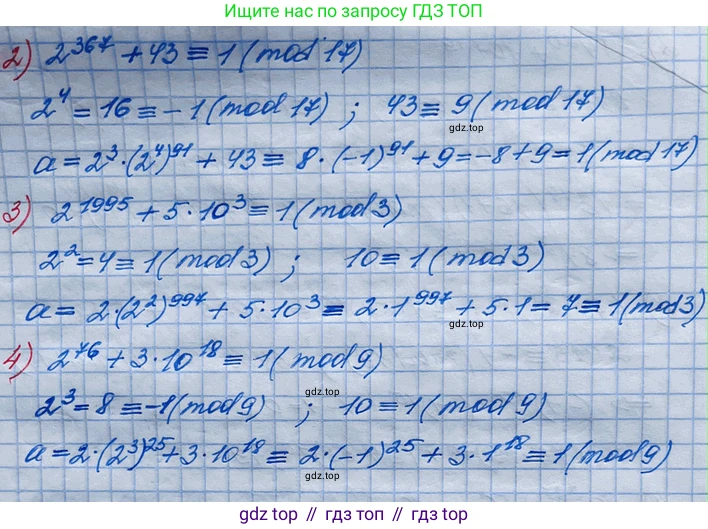 Ищите нас по запросу ГДЗ ТОП
2) 2³⁶⁷ + 43 ≡ 1 (mod 17)
2⁴ = 16 ≡ -1 (mod 17) ; 43 ≡ 9 (mod 17)
gdz.top
a = 2³·(2⁴)⁹¹ + 43 ≡ 8·(-1)⁹¹ + 9 = -8 + 9 = 1 (mod 17)
3) 2¹⁹⁹⁵ + 5·10³ ≡ 1 (mod 3)
2² = 4 ≡ 1 (mod 3) ; 10 ≡ 1 (mod 3)
gdz.top
a = 2·(2²)⁹⁹⁷ + 5·10³ ≡ 2·1⁹⁹⁷ + 5·1 = 7 ≡ 1 (mod 3)
4) 2⁷⁶ + 3·10¹⁸ ≡ 1 (mod 9)
gdz.top
2³ = 8 ≡ -1 (mod 9) ; 10 ≡ 1 (mod 9)
a = 2·(2³)²⁵ + 3·10¹⁸ ≡ 2·(-1)²⁵ + 3·1¹⁸ ≡ 1 (mod 9)
gdz.top
gdz top // гдз топ // gdz.top